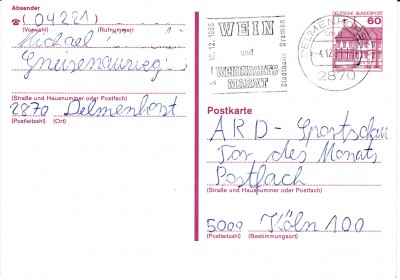 Absender
(04221)
(Vorwahl) (Rufnummer)
Michael
Gneisenauweg
(Straße und Hausnummer oder Postfach)
2870 Delmenhorst
(Postleitzahl) (Ort)
WEIN
und
WEIHNACHTS
MARKT
DELMENHO
2870
DEUTSCHE BUNDESPOST
60
Postkarte
ARD-Sportschau
Tor des Monats
Postfach
(Straße und Hausnummer oder Postfach)
5000 Köln 100
(Postleitzahl) (Bestimmungsort)